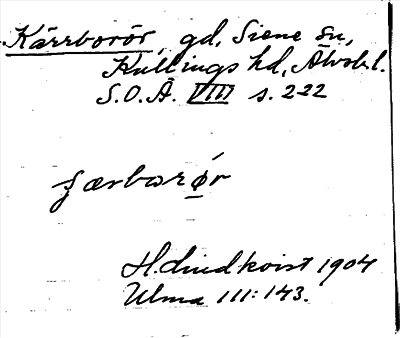 Kärrborör, gd, Siene sn,
Kullings hd, Älvsb. l.
S.O.Ä. VIII s. 222
ɟærbarǿr
H. Lindkvist 1904
Ulma 111:143.